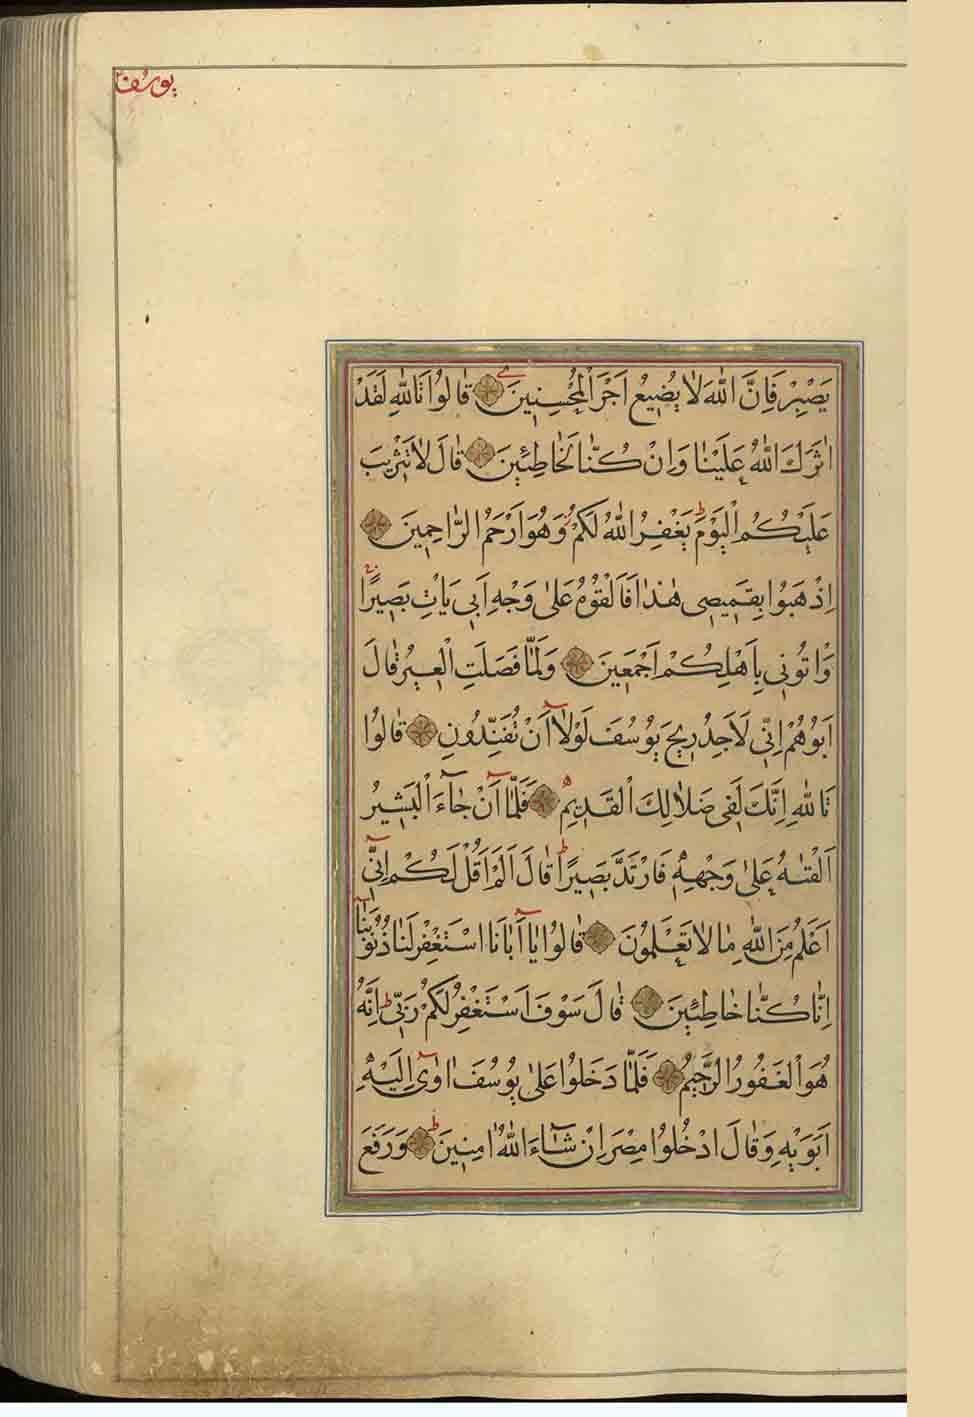 يوسف
يَصْبِرْ فَاِنَّ اللّٰهَ لَا يُضٖيعُ اَجْرَ الْمُحْسِنٖينَ قَالُوا تَاللّٰهِ لَقَدْ
اٰثَرَكَ اللّٰهُ عَلَيْنَا وَاِنْ كُنَّا لَخَاطِئٖينَ قَالَ لَا تَثْرٖيبَ
عَلَيْكُمُ الْيَوْمَ يَغْفِرُ اللّٰهُ لَكُمْ وَهُوَ اَرْحَمُ الرَّاحِمٖينَ
اِذْهَبُوا بِقَمٖيصٖى هٰذَا فَاَلْقُوهُ عَلٰى وَجْهِ اَبٖى يَاْتِ بَصٖيرًا
وَاْتُونٖى بِاَهْلِكُمْ اَجْمَعٖينَ وَلَمَّا فَصَلَتِ الْعٖيرُ قَالَ
اَبُوهُمْ اِنّٖى لَاَجِدُ رٖيحَ يُوسُفَ لَوْلَا اَنْ تُفَنِّدُونِ قَالُوا
تَاللّٰهِ اِنَّكَ لَفٖى ضَلَالِكَ الْقَدٖيمِ فَلَمَّا اَنْ جَاءَ الْبَشٖيرُ
اَلْقٰيهُ عَلٰى وَجْهِهٖ فَارْتَدَّ بَصٖيرًا قَالَ اَلَمْ اَقُلْ لَكُمْ اِنّٖى
اَعْلَمُ مِنَ اللّٰهِ مَا لَا تَعْلَمُونَ قَالُوا يَا اَبَانَا اسْتَغْفِرْ لَنَا ذُنُوبَنَا
اِنَّا كُنَّا خَاطِئٖينَ قَالَ سَوْفَ اَسْتَغْفِرُ لَكُمْ رَبّٖى اِنَّهُ
هُوَ الْغَفُورُ الرَّحٖيمُ فَلَمَّا دَخَلُوا عَلٰى يُوسُفَ اٰوٰى اِلَيْهِ
اَبَوَيْهِ وَقَالَ ادْخُلُوا مِصْرَ اِنْ شَاءَ اللّٰهُ اٰمِنٖينَ وَرَفَعَ